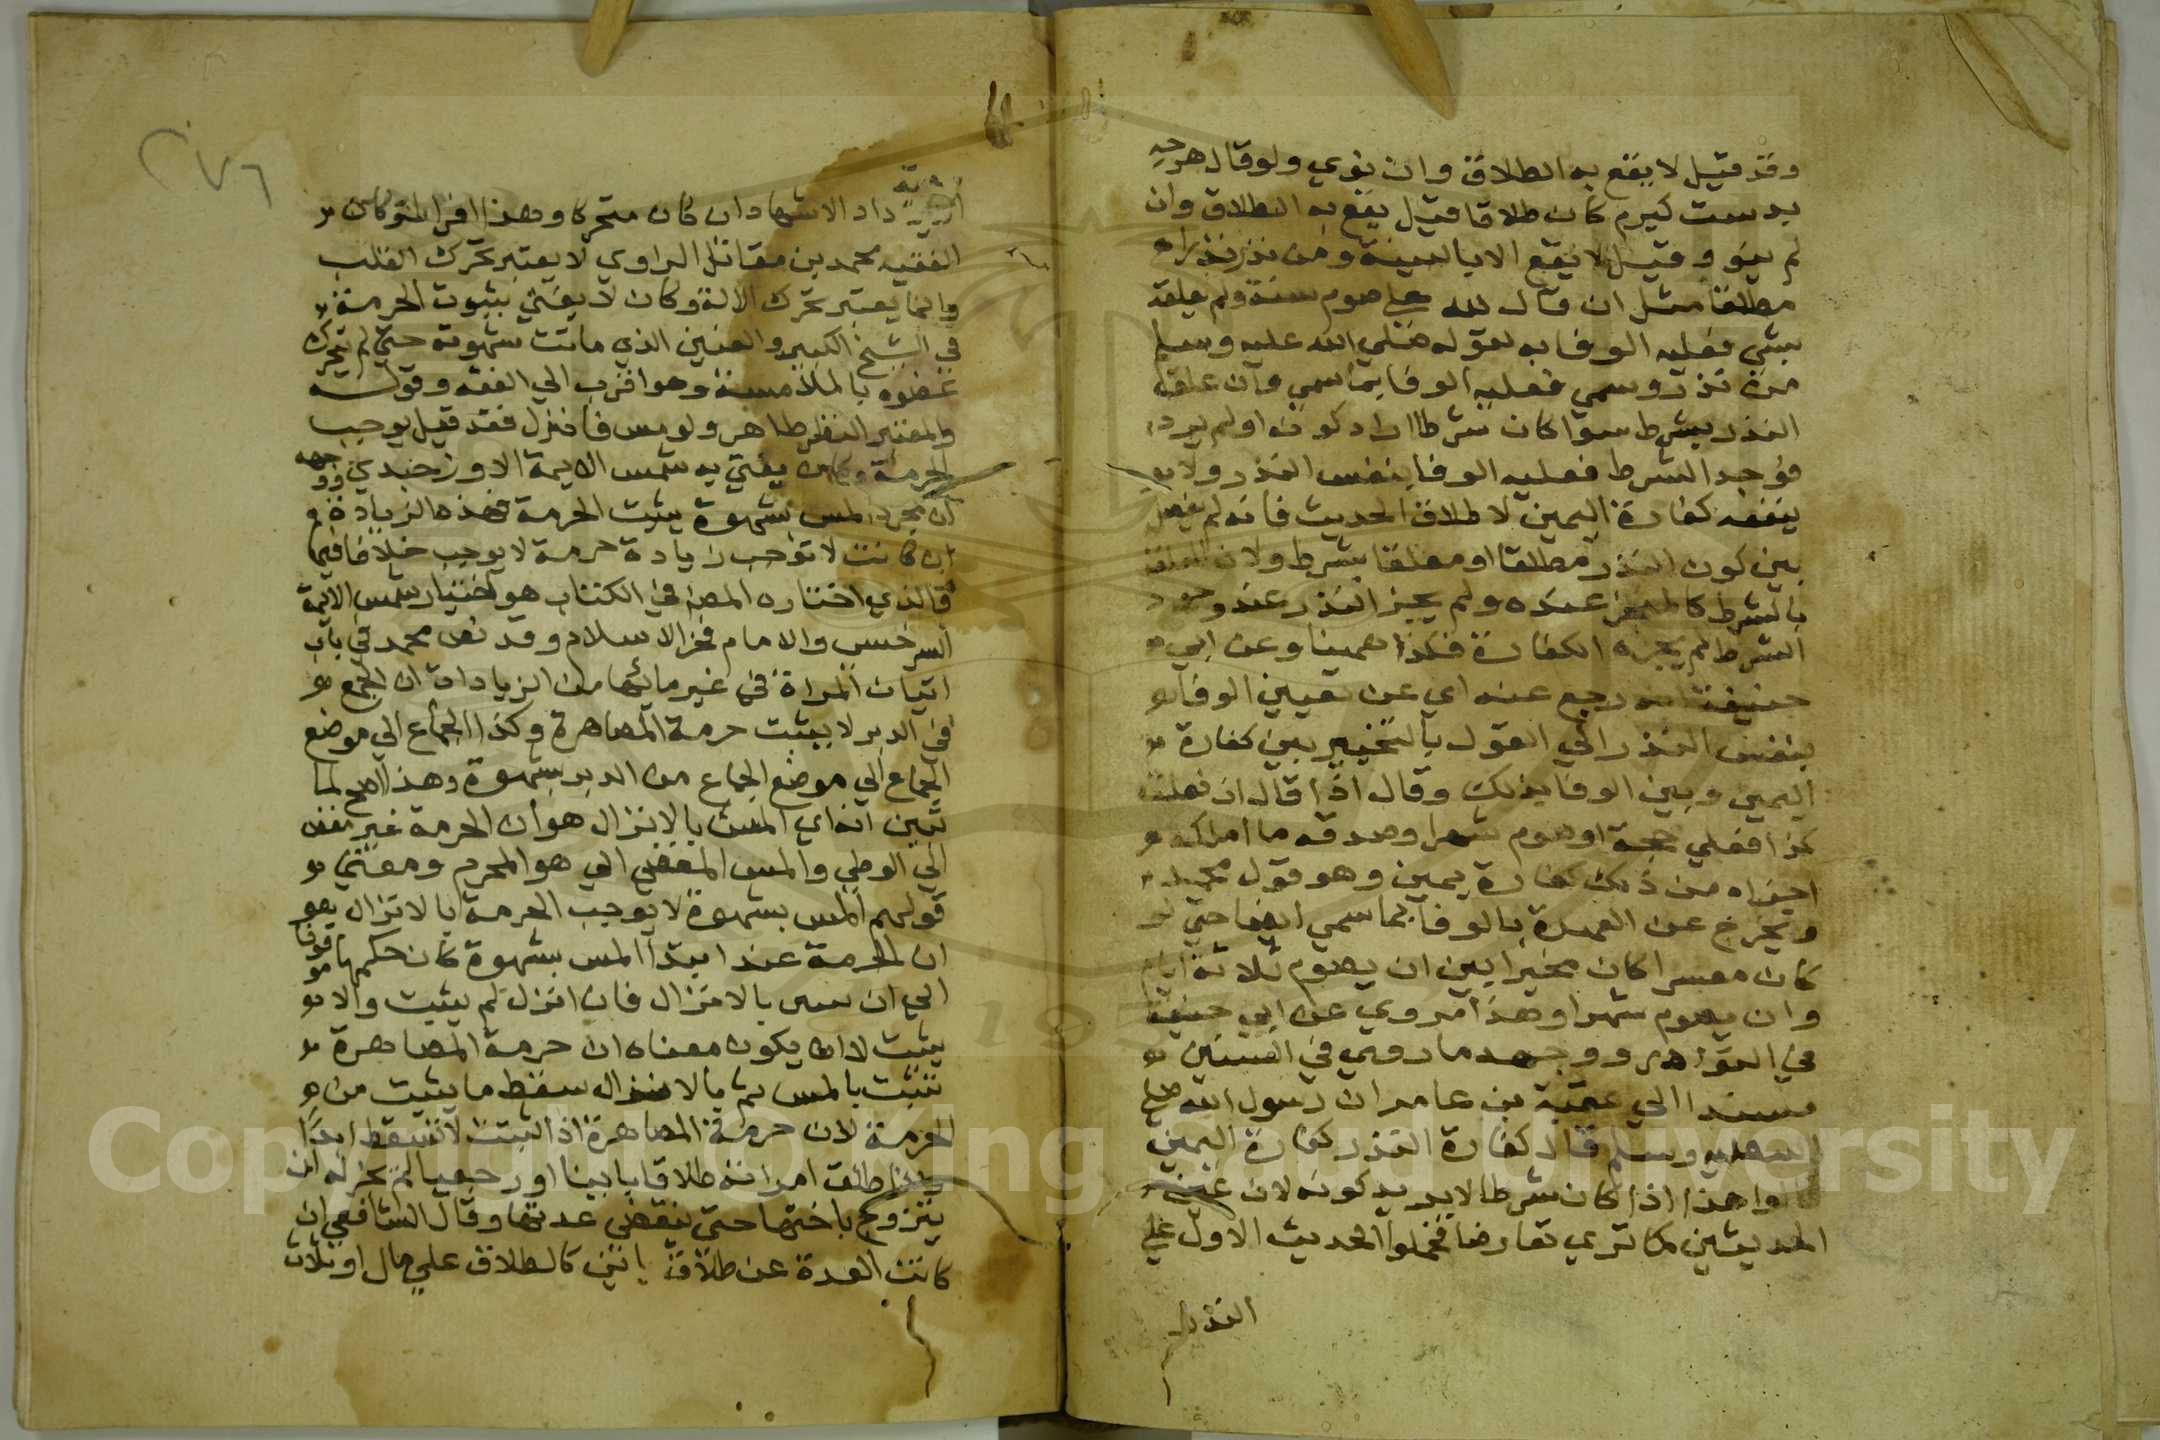 وقد قيل لا يقع به الطلاق وان نوي ولو قال هرجه
بدست كيرم كان طلاقا قيل يقع به الطلاق وان
لم ينو وقيل لا يقع الا بالنية ومن نذر نذرا
مطلقا مثل ان قال لله علي صوم سنة ولم يعلقه
بشي فعليه الوفا به لقوله صلي الله عليه وسلم
من نذر وسمي فعليه الوفا بما سمي وان علق
النذر بشرط سوا كان شرطا اراد كونه او لم يرد
فوجد الشرط فعليه الوفا بنفس النذر ولا
ينفعه كفارة اليمين لاطلاق الحديث فانه لم يفصل
بين كون النذر مطلقا او معلقا بشرط ولان المعلق
بالشرط كالمنجز عنده ولو نجز النذر عند وجود
الشرط لم يجزه الكفارة فكذا ههنا وعن ابي
حنيفة انه رجع عنه اي عن تعيين الوفا
بنفس النذر الي القول بالتخيير بين كفارة
اليمين وبين الوفا بذلك وقال اذا قال ان فعلت
كذا فعلي حجة او صوم شهر او صدقة ما املكه
اجزاه من ذلك كفارة يمين وهو قول محمد
ويخرج عن العهدة بالوفا بما سمي ايضا حتي لو
كان معسرا كان مخيرا بين ان يصوم ثلاثة ايام
وان يصوم شهرا وهذا مروي عن ابي حنيفة
في النوادر ووجهه ما روي في السنن
مسندا الي عقبة بن عامر ان رسول الله صلي
الله عليه وسلم قال كفارة النذر كفارة اليمين
وهذا اذا كان شرطا لا يريد كونه لان
الحديثين كما تري تعارضا فحملوا الحديث الاول علي
النذر
٢٧٦
داد الاشتهاد ان كان متحركا وهذا افراط وكان
الفقيه محمد بن مقاتل الراوي لا يعتبر تحرك القلب
وانما يعتبر تحرك الالة وكان لا يفتي بثبوت الحرمة
في الشيخ الكبير والعنين الذي ماتت شهوته حتي لم يتحرك
عضوه بالملامسة وهو اقرب الي الفقه وقوله
والمعتبر النظر ظاهر ولو مس فانزل فقد قيل يوجب
الحرمة وكان يفتي به شمس الايمة الاوزجندي ووجهه
ان مجرد المس بشهوة يثبت الحرمة فهذه الزيادة
ان كانت لا توجب زيادة حرمة لا يوجب خللا فيها
والذي اختاره المصنف في الكتاب هو اختيار شمس الايمة
السرخسي والامام فخر الاسلام وقد نص محمد في باب
اتيان المراة في غير ماتيها من الزيادات ان الجماع
في الدبر لا يثبت حرمة المصاهرة وكذا الجماع الي موضع
الجماع الي موضع الجماع من الدبر بشهوة وهذا اصح لما
تبين انه اي المس بالانزال هو ان الحرمة غير مفض
الي الوطي والمس المفضي الي هو المحرم ومعني
قولهم المس بشهوة لا يوجب الحرمة بالانزال هو
ان الحرمة عند ابتدا المس بشهوة كان حكمها موقوفا
الي ان يتبين بالانزال فان انزل لم يثبت والا
يثبت لا ان يكون معناه ان حرمة المصاهرة
تثبت بالمس ثم بالانزال سقط ما يثبت من
الحرمة لان حرمة المصاهرة اذا ثبتت لا تسقط ابدا
واذا طلق امراته طلاقا باينا او رجعيا لم يجز له ان
يتزوج باختها حتي تنقضي عدتها وقال الشافعي ان
كانت العدة عن طلاق باين كالطلاق علي مال او ثلاث
Copyright © King Saud University